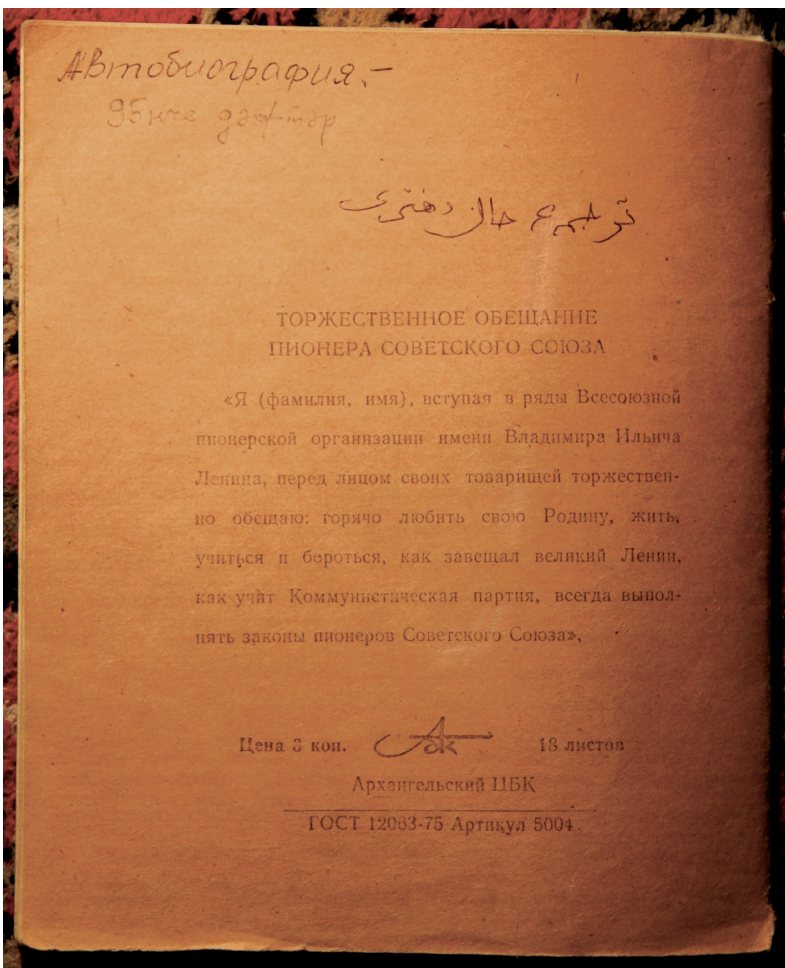 Автобиография.-
95нче дәфтәр
ترجمهء حال دفتری
ТОРЖЕСТВЕННОЕ ОБЕЩАНИЕ
ПИОНЕРА СОВЕТСКОГО СОЮЗА
«Я (фамилия, имя), вступая в ряды Всесоюзной
пионерской организации имени Владимира Ильича
Ленина, перед лицом своих товарищей торжествен-
но обещаю: горячо любить свою Родину, жить,
учиться и бороться, как завещал великий Ленин,
как учит Коммунистическая партия, всегда выпол-
нять законы пионеров Советского Союза»,
Цена 3 коп. 18 листов
Архангельский ЦБК
ГОСТ 12063-75 Артикул 5004